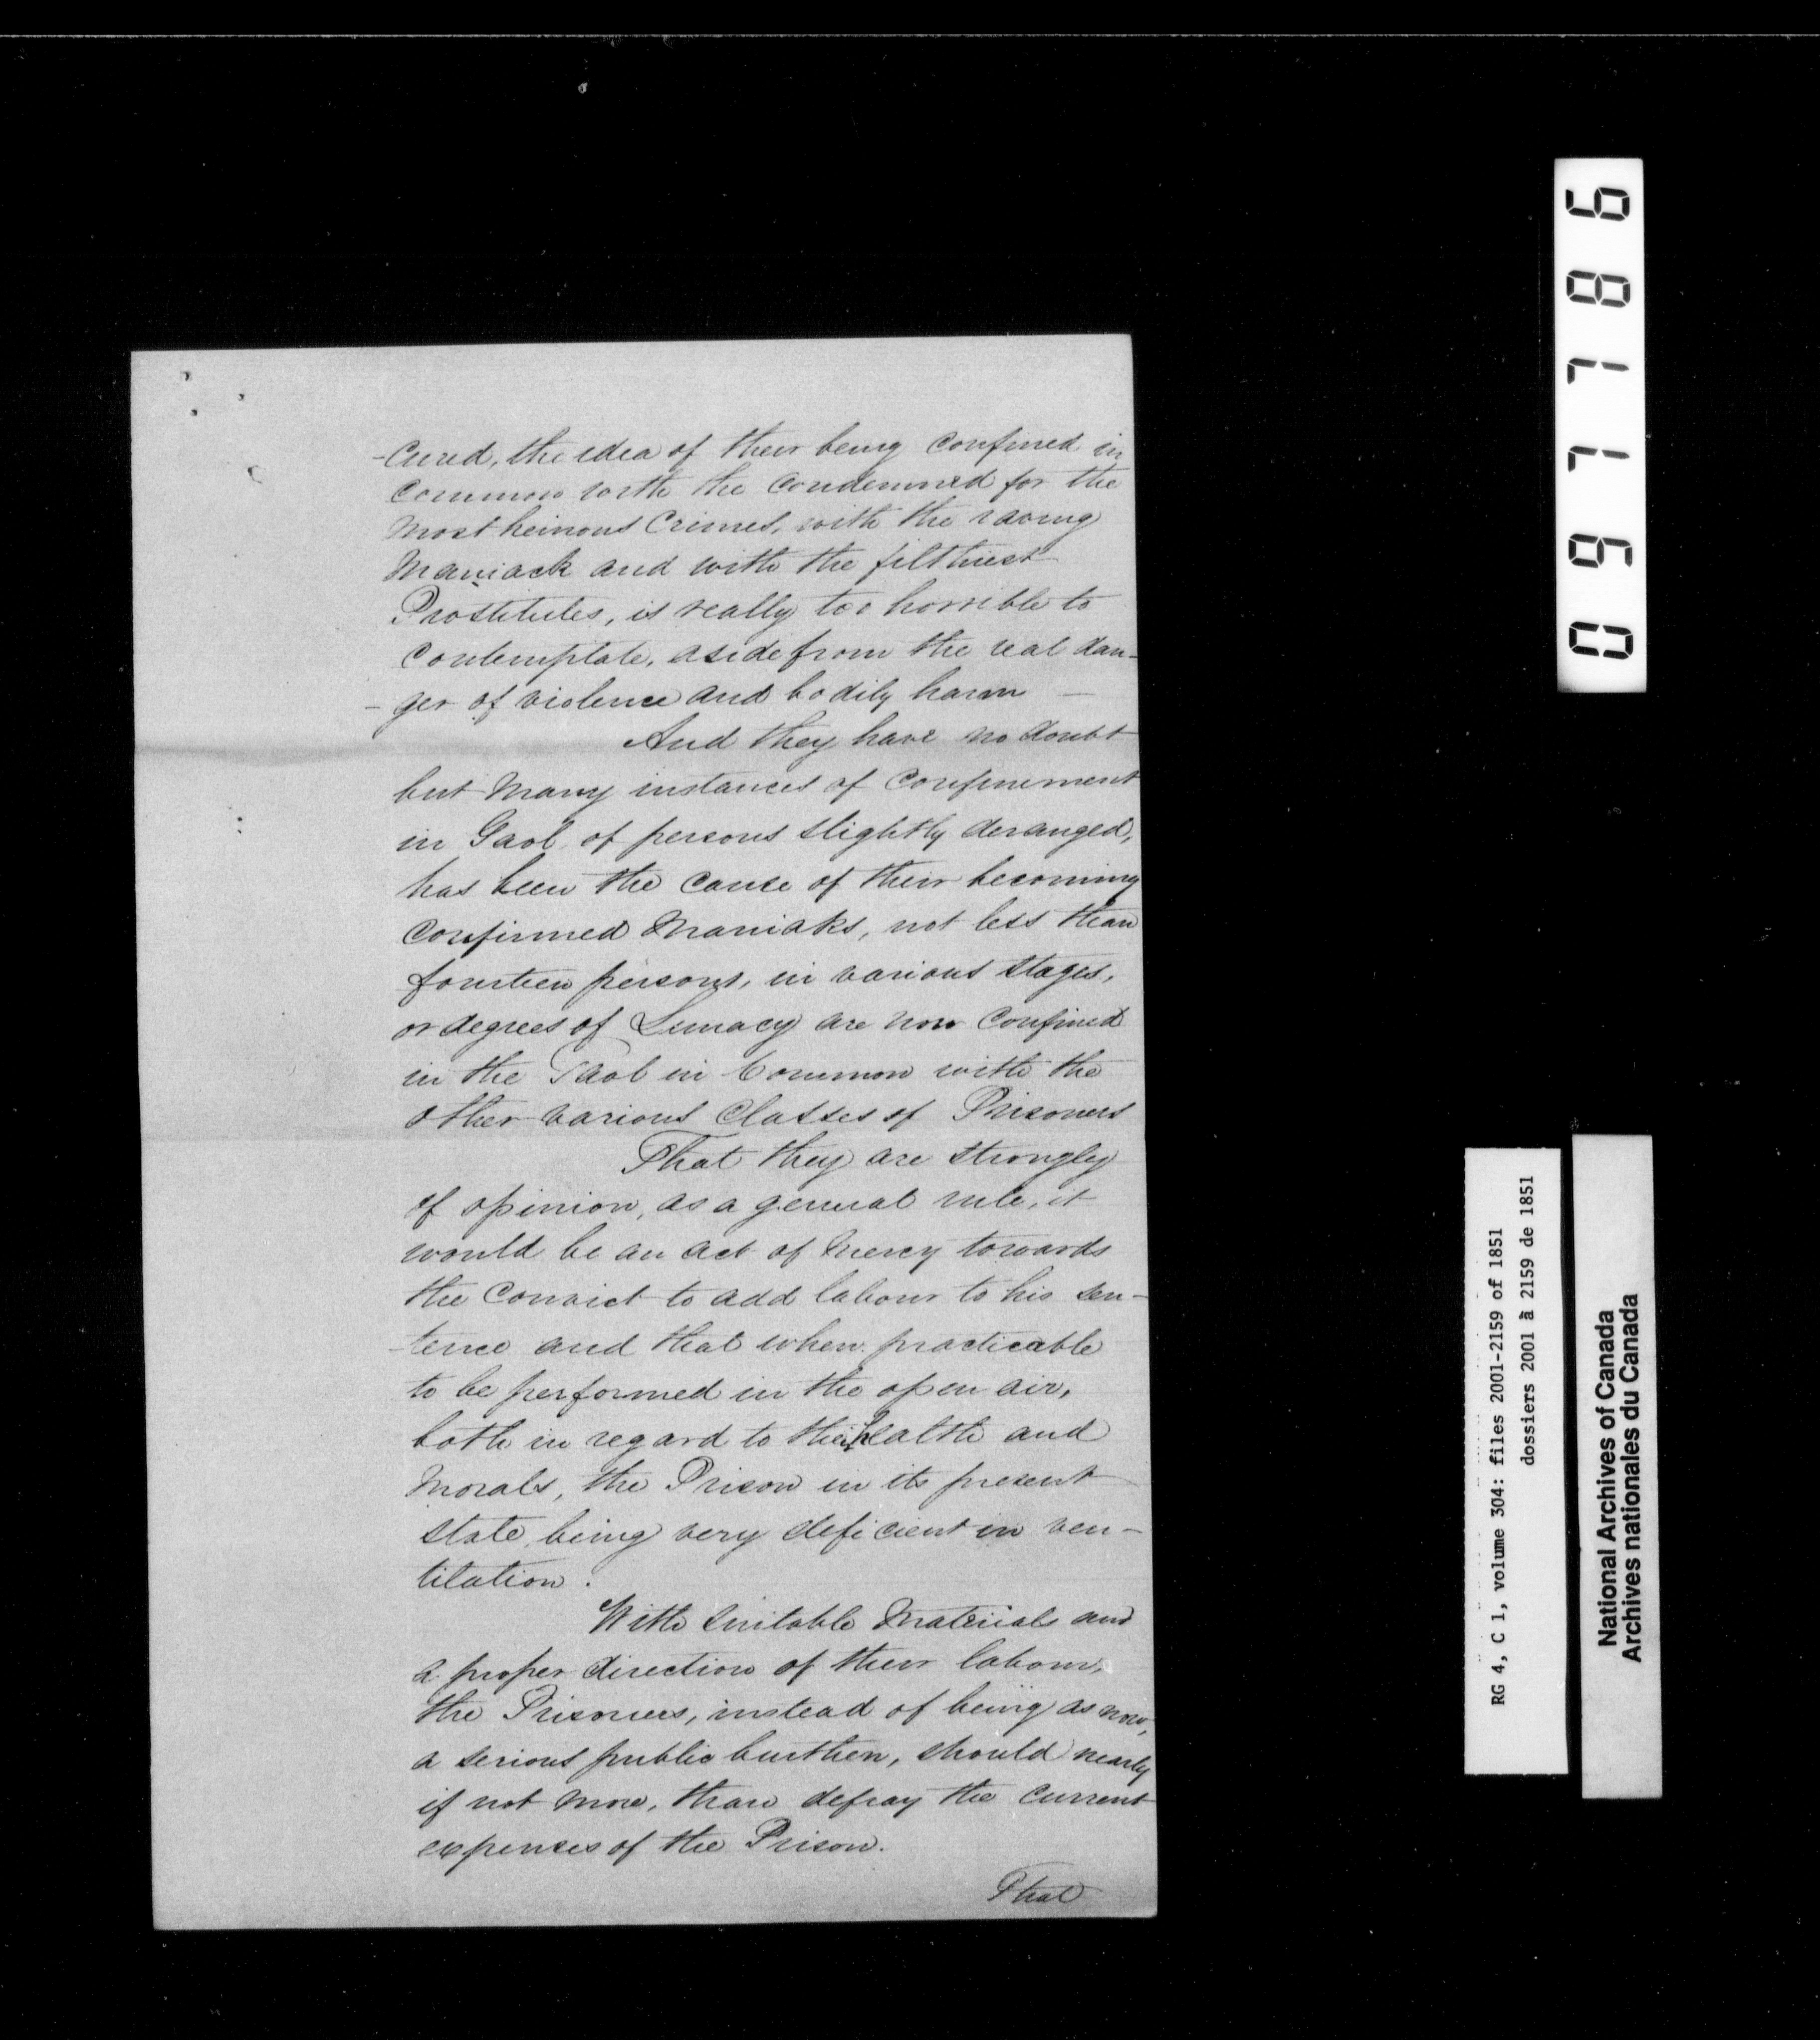 -cured, the idea of their being confined in
common with the condemned for the
most heinous Crimes, with the raving
Maniack and with the filthiest
Prostitutes, is really too horrible to
contemplate, aside from the real dan-
-ger of violence and bodily harm —
And they have no doubt
but many instances of confinement
in Gaol of persons slightly deranged,
has been the cause of their becoming
confirmed Maniaks, not less than
fourteen persons, in various stages,
or degrees of Lunacy are now confined
in the Gaol in Common with the
other various Classes of Prisoners
That they are strongly
of opinion, as a general rule, it
would be an act of Mercy towards
the Convict to add labour to his sen-
-tence and that when practicable
to be performed in the open air,
both in regard to their health and
Morals, the Prison in its present
state, being very deficient in ven-
tilation.
With suitable Materials and
a proper direction of their labour,
the Prisoners, instead of being as now,
a serious public burthen, should nearly
if not more, than defray the current
expenses of the Prison.
That
097786
RG 4, C 1, volume 304: files 2001-2159 of 1851
dossiers 2001 à 2159 de 1851
National Archives of Canada
Archives nationales du Canada